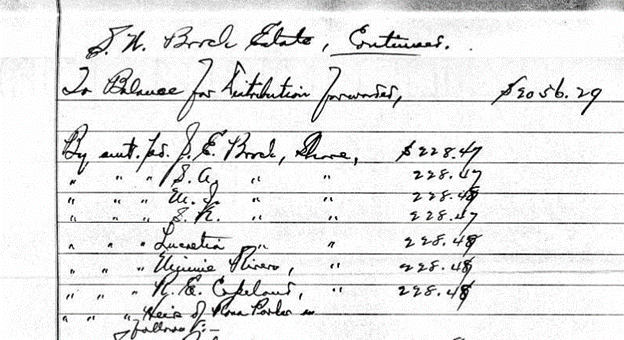 Brock Estate, Continued.
To Balance for Distribution forwarded, $2056.29
By amt. pd. J. E. Brock, Share, $228.47
" " " S. A. " " 228.47
" " " M. J. " " 228.48
" " " S. R. " " 228.47
" " " Lucretia " " 228.48
" " " Rivers, " 228.48
" " " R. E. Copeland, " 228.48
" " " Heirs of Rosa Parker as
follows:-